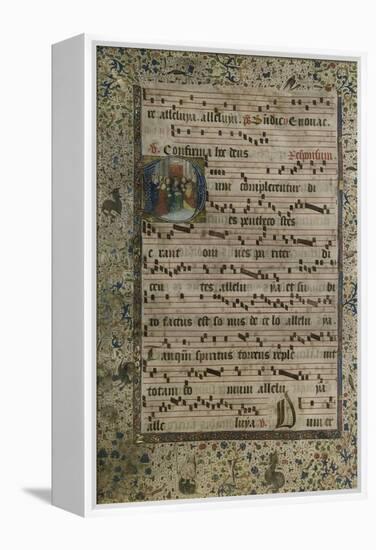 re alleluya. alleluya. Sudic Enouae.
Confirma hoc deus Responsum.
um complerentur di
es penthecostes
erant om nes pariter di
cen tes allelu ya et subi
to factus est so nus de ce lo allelu ya.
Tanquam spiritus torrens reple
totam do mum allelu ya
alle luya. Dum er